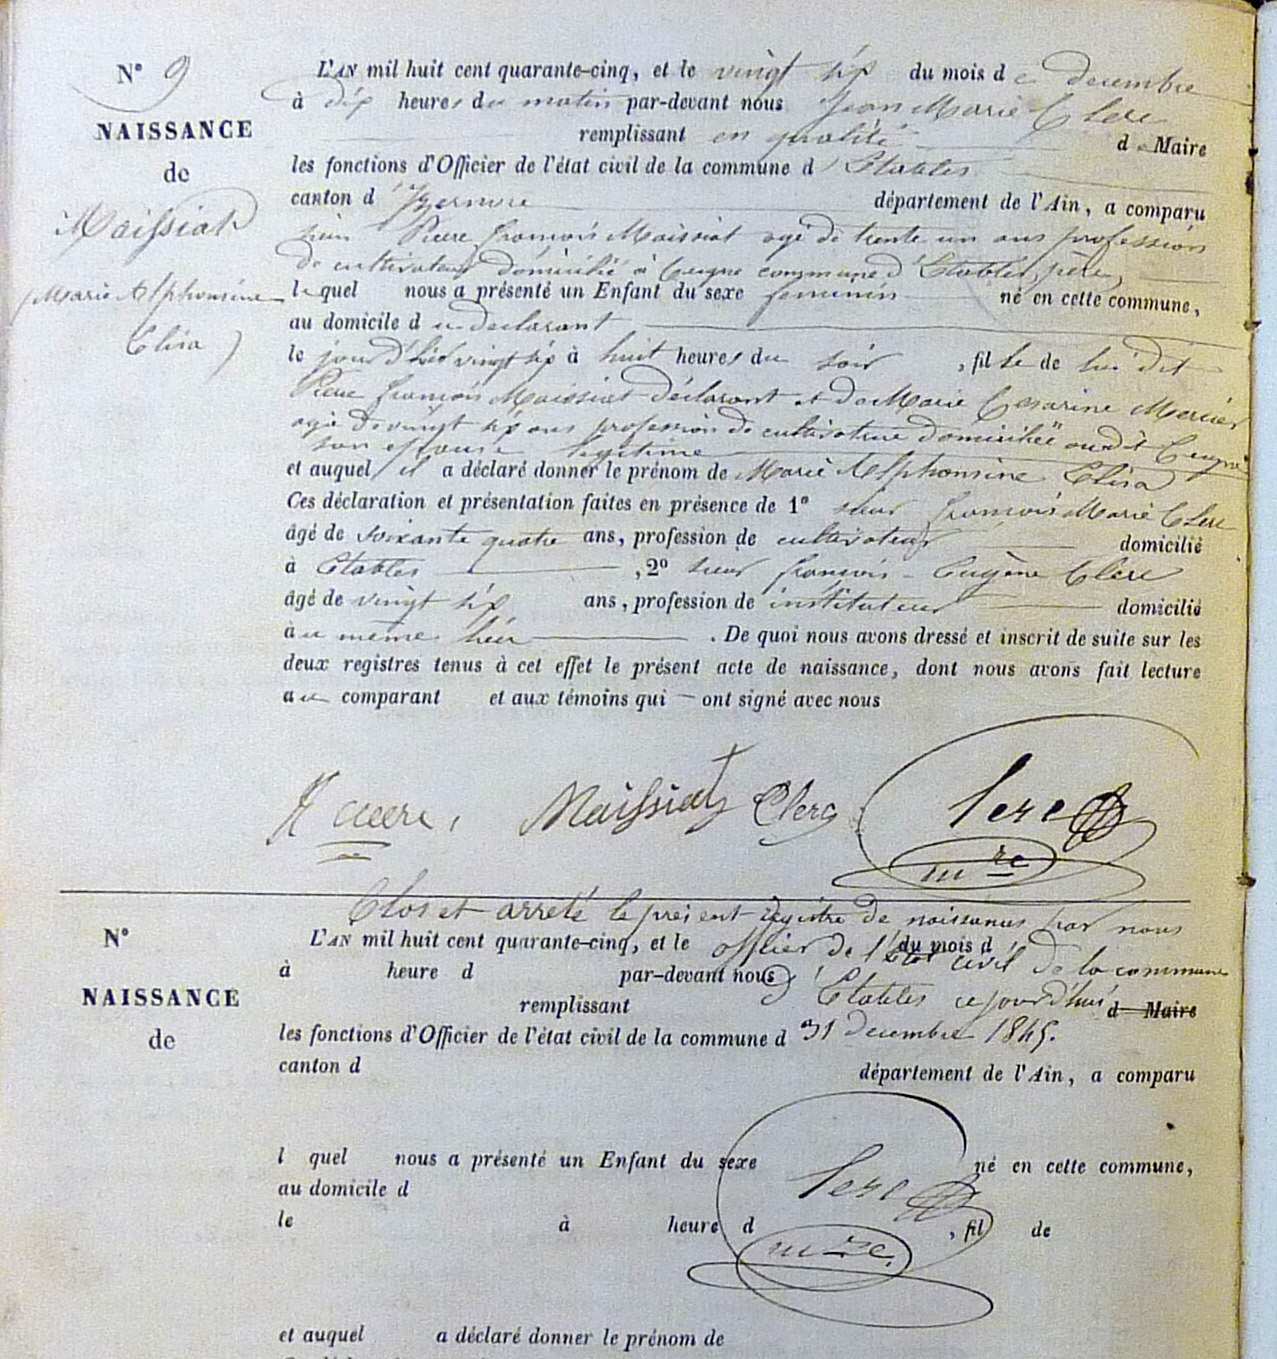 N° 9
NAISSANCE
de
Maissiat
(Marie Alphonsine
Elisa)
L'AN mil huit cent quarante-cinq, et le vingt six du mois de decembre
à dix heures du matin par-devant nous Jean Marie Clerc
remplissant en qualité de Maire
les fonctions d'Officier de l'état civil de la commune d'Etables
canton d'Izernore département de l'Ain, a comparu
sieur Pierre françois Maissiat agé de trente un ans profession
de cultivateur domicilié à Ceigne commune d'Etables, père,
lequel nous a présenté un Enfant du sexe feminin né en cette commune,
au domicile du declarant
le jour d'hier vingt six à huit heures du soir, fille de lui dit
Pierre françois Maissiat déclarant et de Marie Cesarine Mercier
agée de vingt six ans profession de cultivatrice domiciliée au dit Ceigne
son epouse legitime
et auquel il a déclaré donner le prénom de Marie Alphonsine Elisa
Ces déclaration et présentation faites en présence de 1° sieur françois Marie Clerc
âgé de soixante quatre ans, profession de cultivateur domicilié
à Etables, 2° sieur françois-Eugène Clerc
âgé de vingt six ans, profession de instituteur domicilié
au même lieu. De quoi nous avons dressé et inscrit de suite sur les
deux registres tenus à cet effet le présent acte de naissance, dont nous avons fait lecture
au comparant et aux témoins qui ont signé avec nous
Maissiat Clerc Clerc
mre
Clos et arreté le present registre de naissances par nous
officier de l'état civil de la commune
d'Etables ce jourd'hui
31 decembre 1845.
N°
NAISSANCE
de
L'AN mil huit cent quarante-cinq, et le du mois d
à heure d par-devant nous
remplissant d Maire
les fonctions d'Officier de l'état civil de la commune d
canton d département de l'Ain, a comparu
l quel nous a présenté un Enfant du sexe né en cette commune,
au domicile d
Clerc
le à heure d , fil de
mre.
et auquel a déclaré donner le prénom de